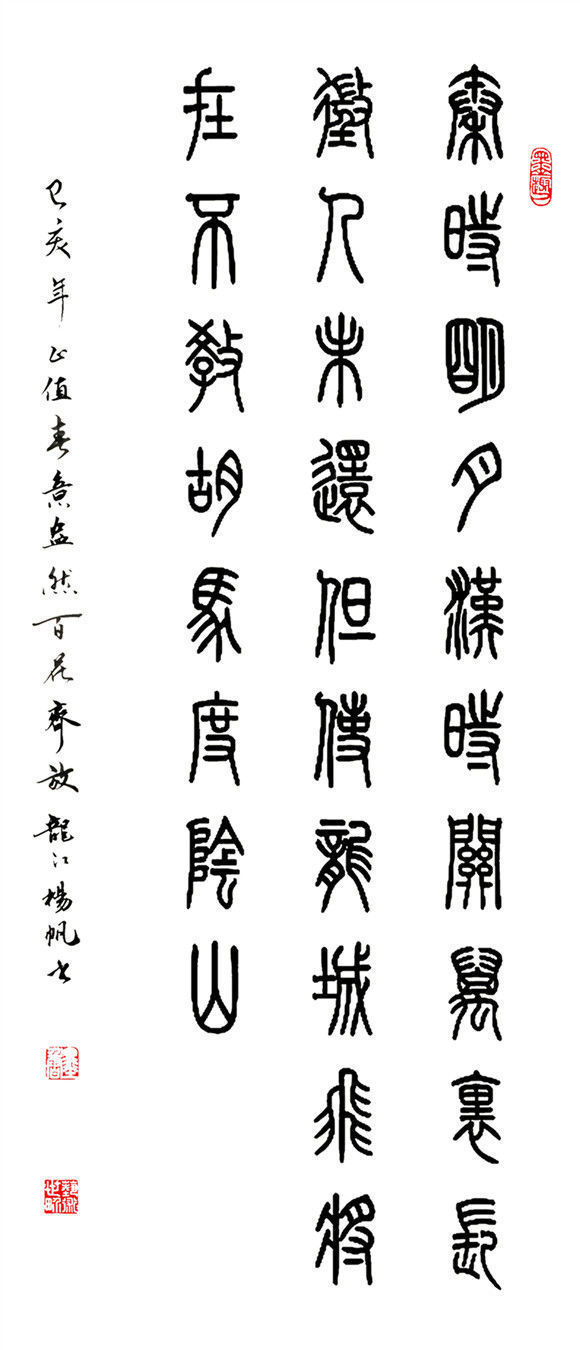 秦時明月漢時關萬裏長
徵人未還但使龍城飛將
在不教胡馬度陰山
己亥年正值春意盎然百花齊放龍江楊帆書